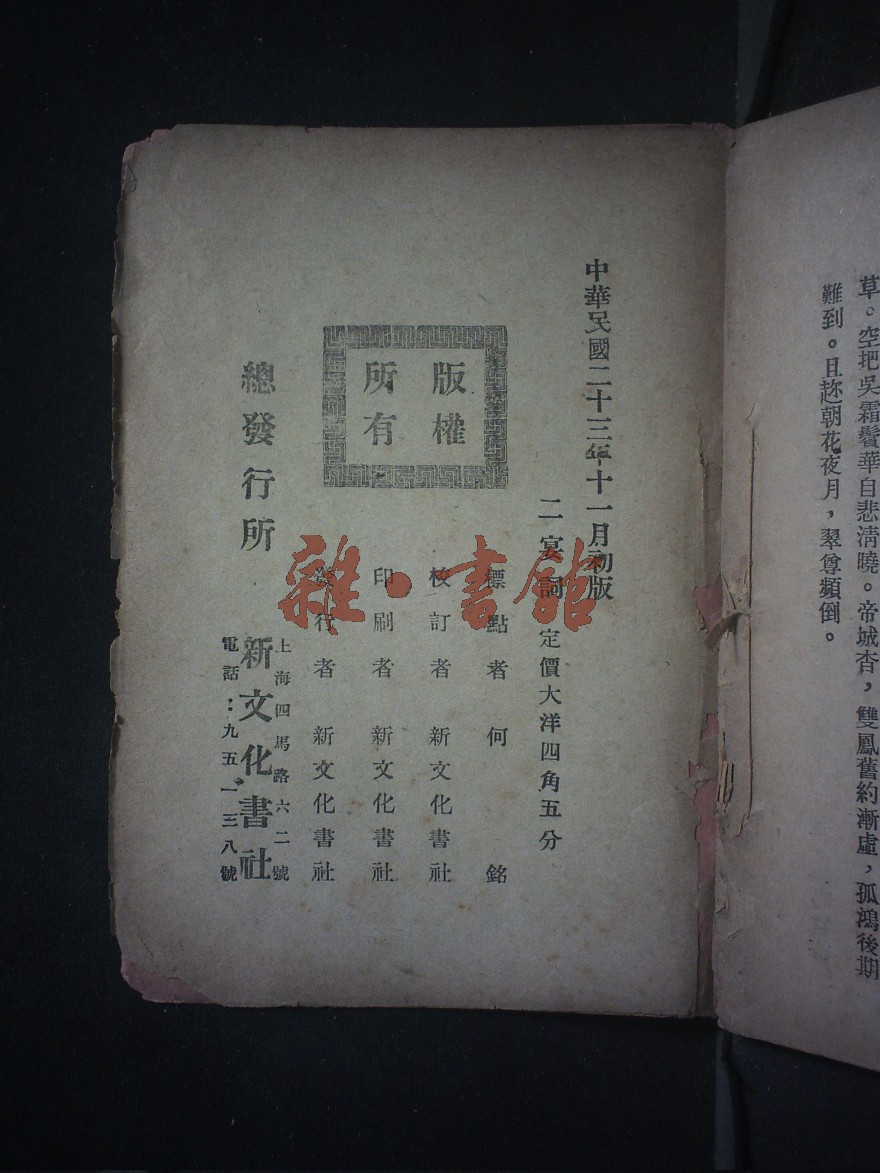 草。空把吳霜鬢華自悲清曉。帝城杳，雙鳳舊約漸虛，孤鴻後期
難到。且趂朝花夜月，翠尊頻倒。
中華民國二十三年十一月初版
二宴詞 定價大洋四角五分
版權
所有
標點者 何 銘
校訂者 新文化書社
印刷者 新文化書社
發行者 新文化書社
總發行所
上海四馬路六二號
新文化書社
電話：九五一三八號
雜·書館